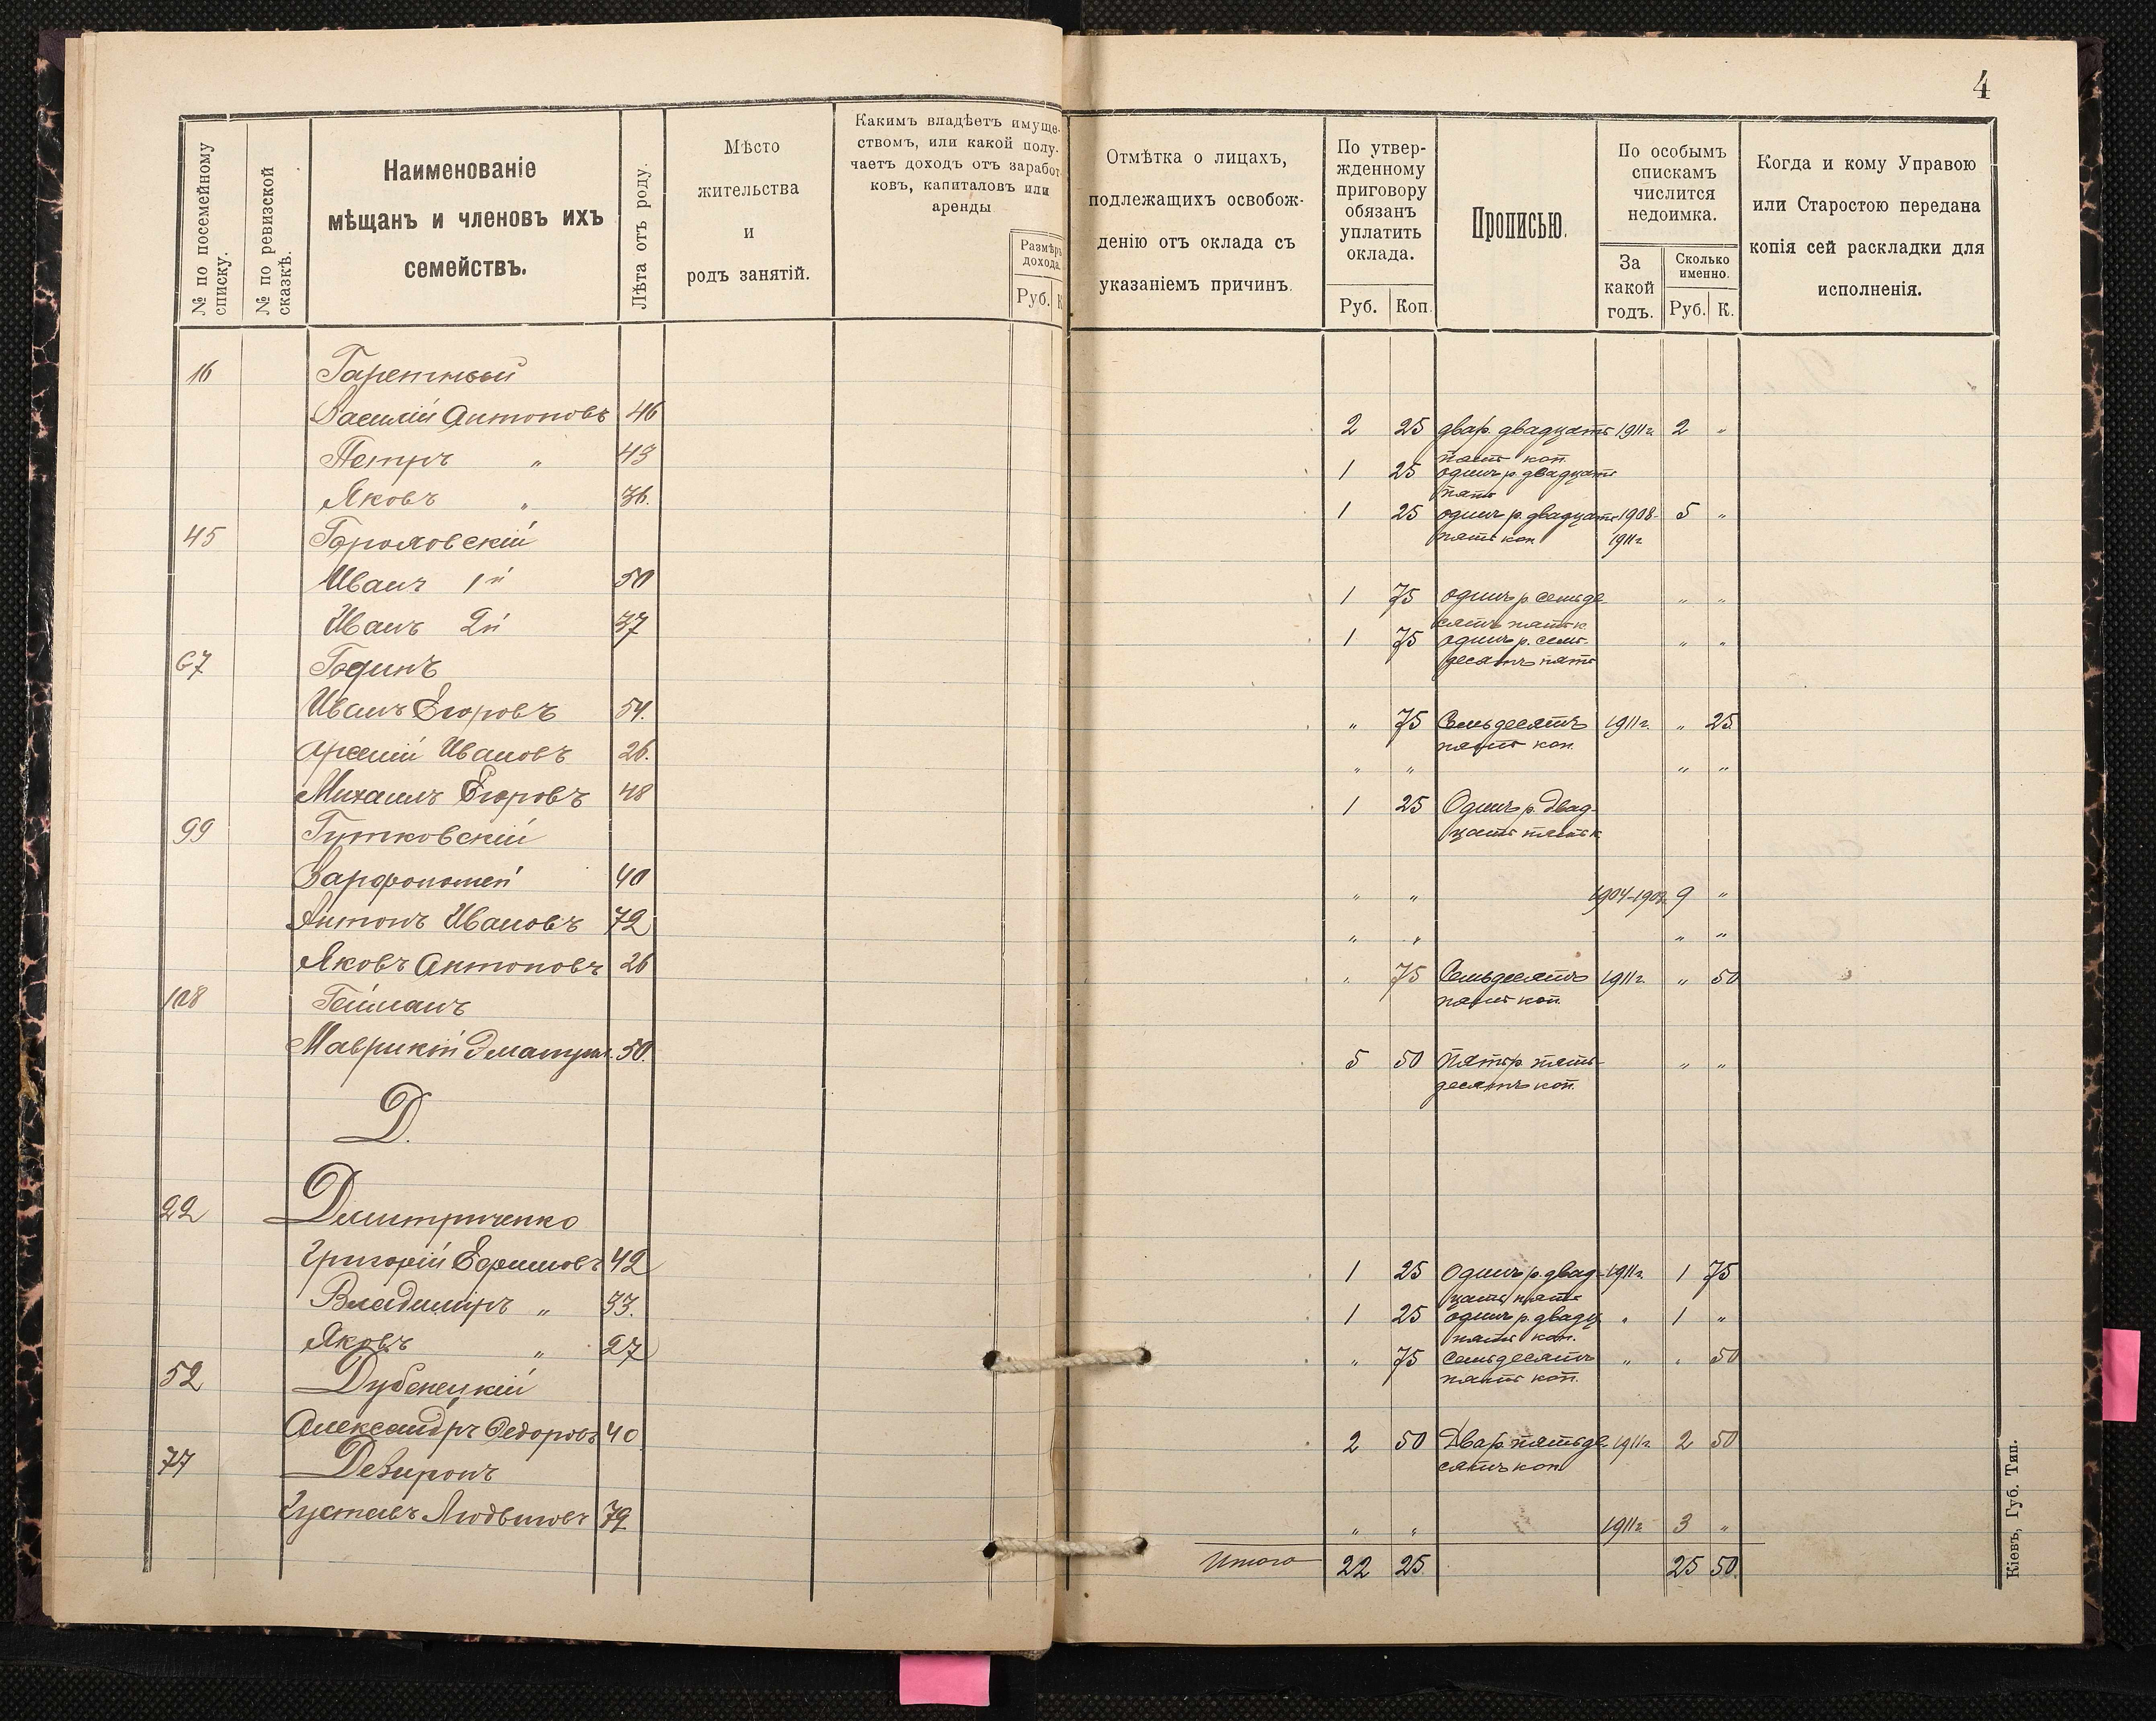 4
№ по посемейному
списку.
№ по ревизской
сказкѣ.
Наименованіе
мѣщанъ и членовъ ихъ
семействъ.
Лѣта отъ роду.
Мѣсто
жительства
и
родъ занятій.
Какимъ владѣетъ имуще-
ствомъ, или какой полу-
чаетъ доходъ отъ заработ-
ковъ, капиталовъ или
аренды
Размѣръ
дохода.
Руб. К
Отмѣтка о лицахъ,
подлежащихъ освобож-
денію отъ оклада съ
указаніемъ причинъ.
По утвер-
жденному
приговору
обязанъ
уплатить
оклада.
Руб. Коп.
Прописью.
По особымъ
спискамъ
числится
недоимка.
За
какой
годъ.
Сколько
именно.
Руб. К.
Когда и кому Управою
или Старостою передана
копія сей раскладки для
исполненія.
16
Василій Антоновъ 46 2 25 два р. двадцать 1911 г. 2 "
пять коп.
Петръ " 43 1 25 одинъ р. двадцать
пять
Яковъ " 36. 1 25 одинъ р. двадцать 1908- 5 "
45 пять коп 1911 г.
Иванъ 1й 50 1 75 одинъ р. семьде- " "
сятъ пять к
Иванъ 2й 37 1 75 одинъ р. семь- " "
67 Годинъ десятъ пять
Иванъ Егоровъ 54. " 75 Семьдесятъ 1911 г. " 25.
пять коп.
Арсеній Ивановъ 26. " " " "
Михаилъ Егоровъ 48 1 25 Одинъ р. двад-
99 Гутковскій цать пять к
Варфоломей 40 " " 9 "
Антонъ Ивановъ 72 " " " "
Яковъ Антоновъ 26 " 75 Семьдесятъ 1911 г. " 50
108 Гейманъ пять коп.
Маврикій 50. 5 50 Пять р. пять- " "
десятъ коп.
Д.
22 Дмитриченко
Григорій Ефимовъ 42 1 25 Одинъ р. двад- 1911 г. 1 75
цать пять
Владиміръ " 33. 1 25 одинъ р. двадц " 1 "
пять коп.
Яковъ " 27 " 75 Семьдесятъ " " 50
52 Дубенецкій пять коп.
Александръ Федоровъ 40 2 50 Два р. пятьде- 1911 г. 2 50
77 сятъ коп
Густавъ Людвиговъ 79 " " 1911 г. 3 "
Итого 22 25. 25 50.
Кіевъ, Губ. Тип.